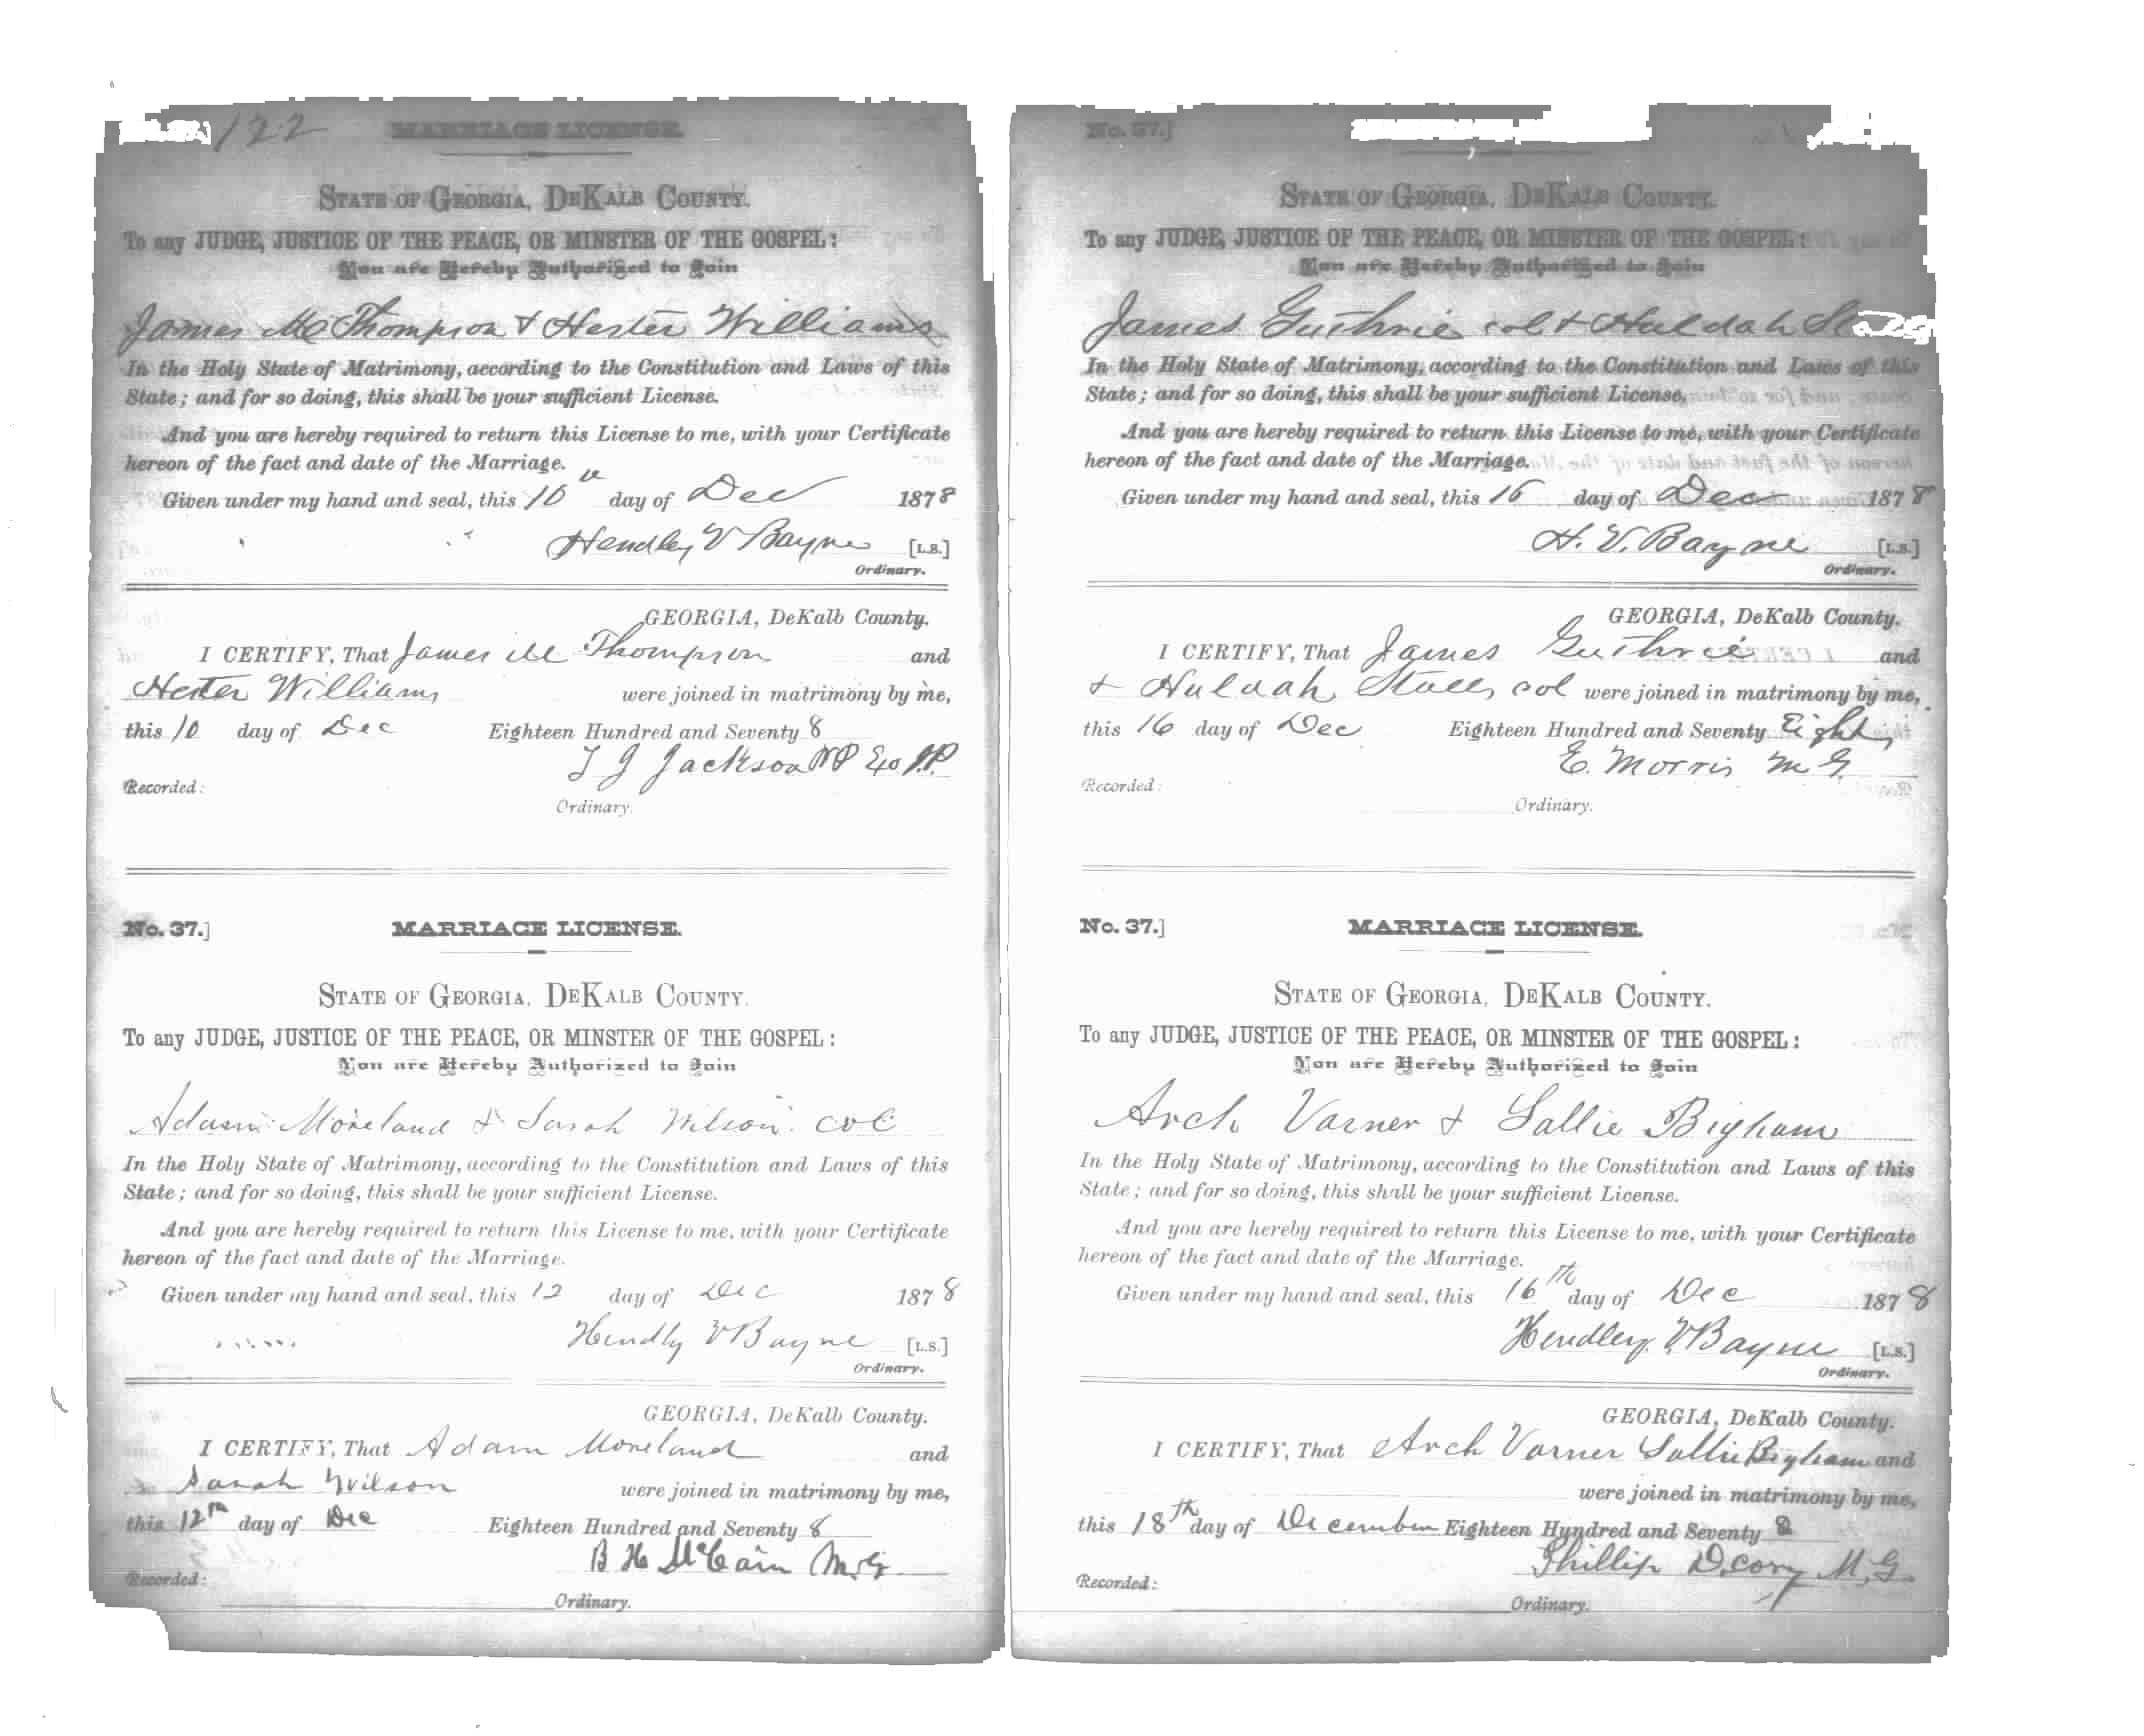 122 MARRIAGE LICENSE.
STATE OF GEORGIA, DEKALB COUNTY.
To any JUDGE, JUSTICE OF THE PEACE, OR MINSTER OF THE GOSPEL:
You are Hereby Authorized to Join
James Mc Thompson & Hester Williams
In the Holy State of Matrimony, according to the Constitution and Laws of this
State; and for so doing, this shall be your sufficient License.
And you are hereby required to return this License to me, with your Certificate
hereon of the fact and date of the Marriage.
Given under my hand and seal, this 10 day of Dec 1878
Hendley V Bayne [L.S.]
Ordinary.
GEORGIA, DeKalb County.
I CERTIFY, That James Mc Thompson and
Hester Williams were joined in matrimony by me,
this 10 day of Dec Eighteen Hundred and Seventy 8
T J Jackson NP Exo J.P.
Recorded:
Ordinary.
No. 37.] MARRIAGE LICENSE.
STATE OF GEORGIA, DEKALB COUNTY.
To any JUDGE, JUSTICE OF THE PEACE, OR MINSTER OF THE GOSPEL:
You are Hereby Authorized to Join
Adam Moreland & Sarah Wilson col
In the Holy State of Matrimony, according to the Constitution and Laws of this
State; and for so doing, this shall be your sufficient License.
And you are hereby required to return this License to me, with your Certificate
hereon of the fact and date of the Marriage.
Given under my hand and seal, this 12 day of Dec 1878
Hendly V Bayne [L.S.]
Ordinary.
GEORGIA, DeKalb County.
I CERTIFY, That Adam Moreland and
Sarah Wilson were joined in matrimony by me,
this 12th day of Dec Eighteen Hundred and Seventy 8
B H McCain M.G.
Recorded:
Ordinary.
No. 37.]
STATE OF GEORGIA, DEKALB COUNTY.
To any JUDGE, JUSTICE OF THE PEACE, OR MINSTER OF THE GOSPEL:
You are Hereby Authorized to Join
James Guthrie col & Huldah
In the Holy State of Matrimony, according to the Constitution and Laws of this
State; and for so doing, this shall be your sufficient License.
And you are hereby required to return this License to me, with your Certificate
hereon of the fact and date of the Marriage.
Given under my hand and seal, this 16 day of Dec 1878
H. V. Bayne [L.S.]
Ordinary.
GEORGIA, DeKalb County.
I CERTIFY, That James Guthrie and
& Huldah col were joined in matrimony by me,
this 16 day of Dec Eighteen Hundred and Seventy Eight
E. Morris M G.
Recorded:
Ordinary.
No. 37.] MARRIAGE LICENSE.
STATE OF GEORGIA, DEKALB COUNTY.
To any JUDGE, JUSTICE OF THE PEACE, OR MINSTER OF THE GOSPEL:
You are Hereby Authorized to Join
Arch Varner & Sallie Bigham
In the Holy State of Matrimony, according to the Constitution and Laws of this
State; and for so doing, this shall be your sufficient License.
And you are hereby required to return this License to me, with your Certificate
hereon of the fact and date of the Marriage.
Given under my hand and seal, this 16th day of Dec 1878
Hendley V. Bayne [L.S.]
Ordinary.
GEORGIA, DeKalb County.
I CERTIFY, That Arch Varner Sallie Bigham and
were joined in matrimony by me,
this 18th day of December Eighteen Hundred and Seventy 8
Phillip M.G.
Recorded:
Ordinary.